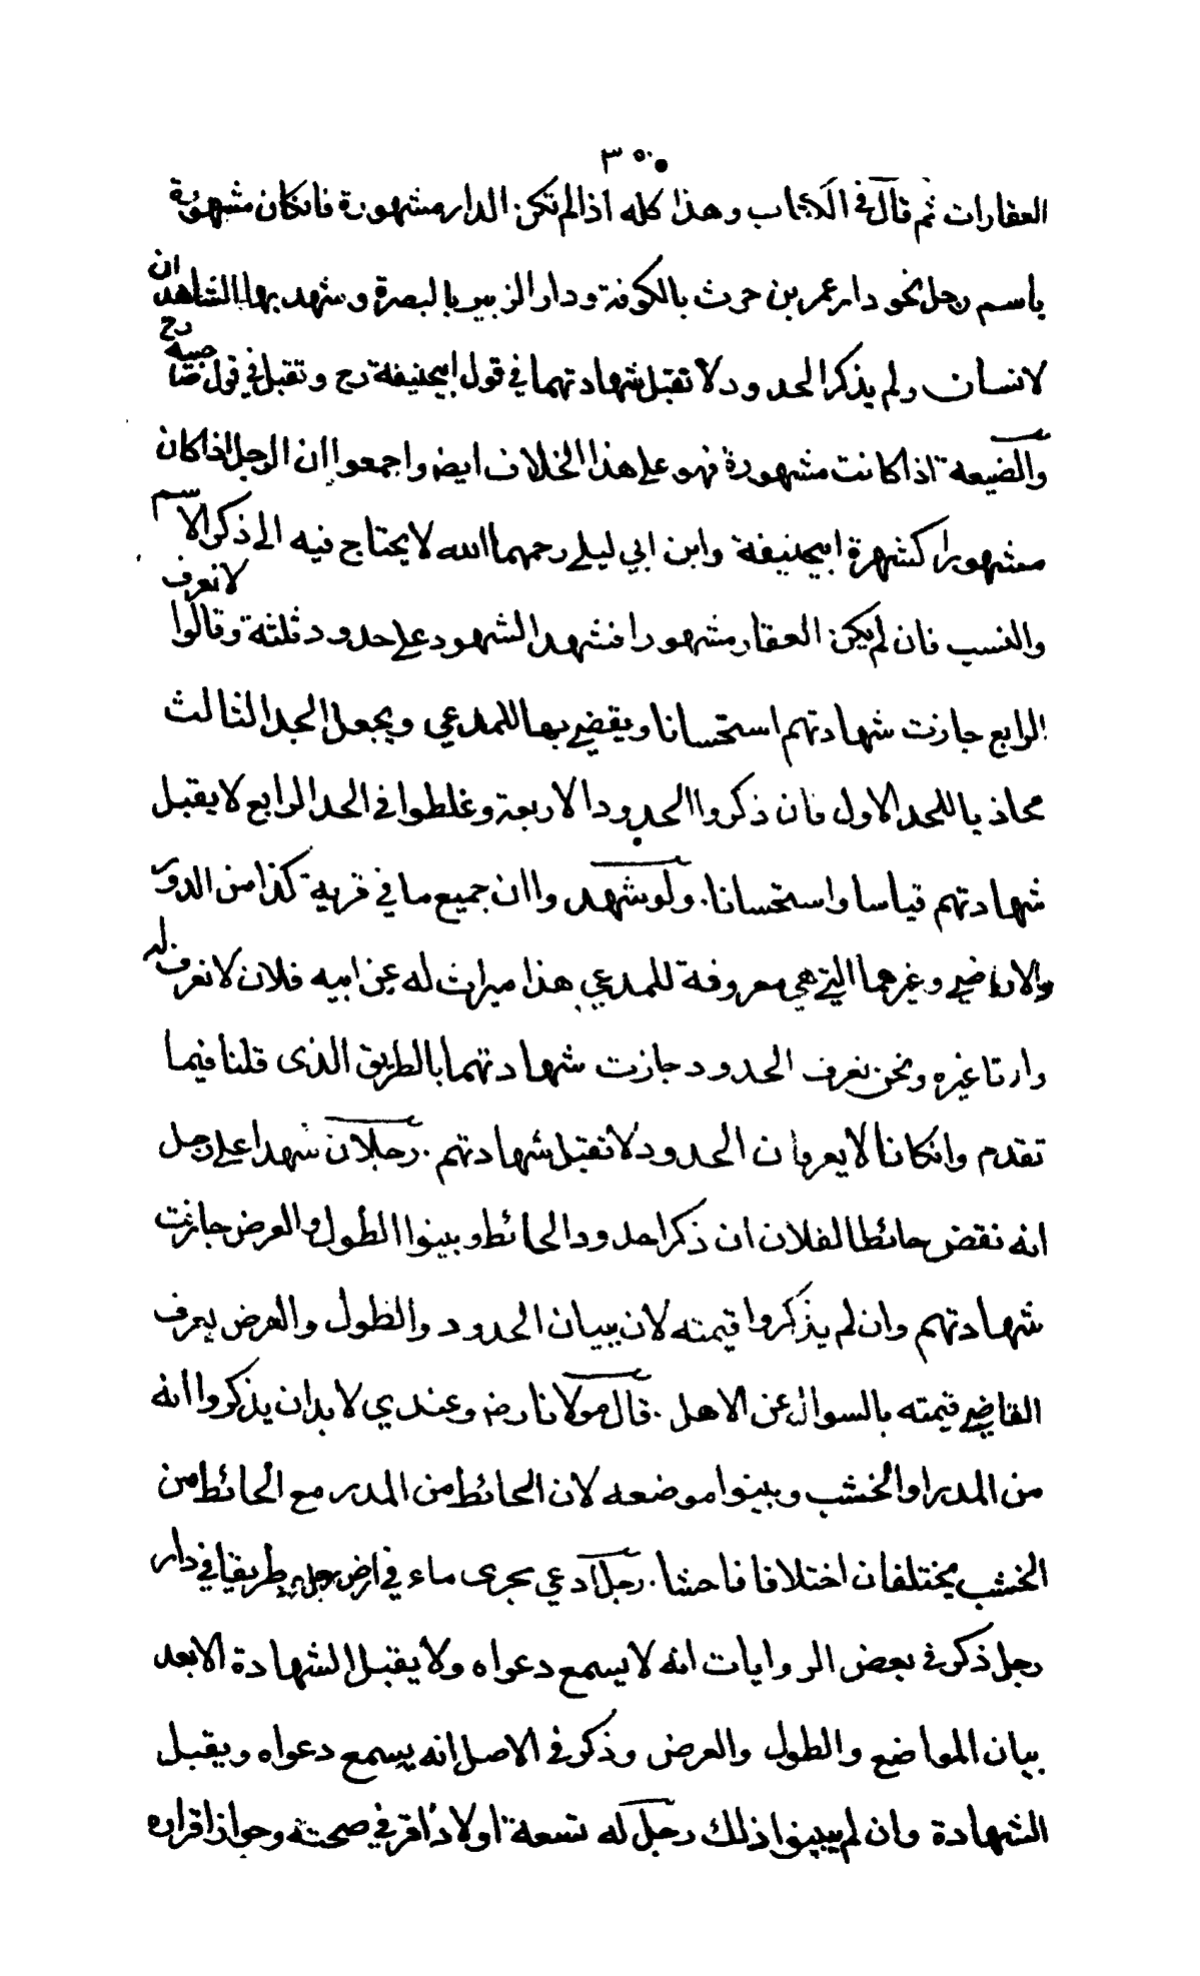 ٣٥٠
العقارات ثم قال في الكتاب وهذا كله اذا لم تكن الدار مشهورة فانكان مشهورة
باسم رجل نحو دار عمر بن حرث بالكوفة ودار الزبير بالبصرة وشهد بها الشاهدان
لانسان ولم يذكرا الحدود لا تقبل شهادتهما في قول ابيحنيفة رح وتقبل في قول صاحبيه رح
والضيعة اذا كانت مشهورة فهو على هذا الخلاف ايض واجمعوا ان الرجل اذا كان
مشهورا كشهرة ابيحنيفة وابن ابي ليلى رحمهما الله لا يحتاج فيه الى ذكر الاسم
والنسب فان لم يكن العقار مشهورا فشهد الشهود على حدود ثلثة وقالوا لا نعرف
الرابع جازت شهادتهم استحسانا ويقضي بها للمدعي ويجعل الحد الثالث
محاذيا للحد الاول فان ذكروا الحدود الاربعة وغلطوا في الحد الرابع لا يقبل
شهادتهم قياسا واستحسانا. ولو شهدوا ان جميع ما في قرية كذا من الدور
والاراضي وغيرهما التي هي معروفة للمدعي هذا ميراث له عن ابيه فلان لا نعرف له
وارثا غيره ونحن نعرف الحدود جازت شهادتهما بالطريق الذى قلنا فيما
تقدم وانكانا لا يعرفان الحدود لا تقبل شهادتهم. رجلان شهدا على رجل
انه نقض حائطا لفلان ان ذكرا حدود الحائط وبينوا الطول والعرض جازت
شهادتهم وان لم يذكروا قيمته لان ببيان الحدود والطول والعرض يعرف
القاضي قيمته بالسوال عن الاهل. قال مولانا رض وعندي لا بد ان يذكروا انه
من المدر او الخشب وبينوا موضعه لان الحائط من المدر مع الحائط من
الخشب يختلفان اختلافا فاحشا. رجل ادعي مجرى ماء في ارض رجل او طريقا في دار
رجل ذكر في بعض الروايات انه لا يسمع دعواه ولا يقبل الشهادة الا بعد
بيان المواضع والطول والعرض وذكر في الاصل انه يسمع دعواه ويقبل
الشهادة وان لم يبينوا ذلك رجل له تسعة اولاد اقر في صحته وجواز اقراره